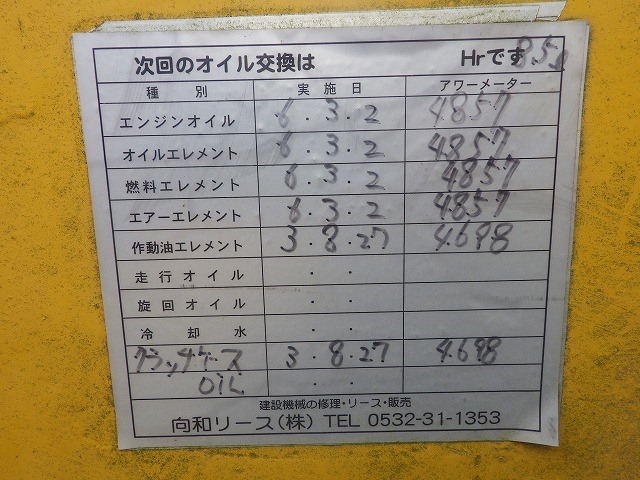 次回のオイル交換は Hrです
種別 実施日 アワーメーター
エンジンオイル 6.3.2 4857
オイルエレメント 6.3.2 4857
燃料エレメント 6.3.2 4857
エアーエレメント 6.3.2 4857
作動油エレメント 3.8.27 4698
走行オイル ・ ・
旋回オイル ・ ・
冷却水 ・ ・
クラッチケース 3.8.27 4698
OIL ・ ・
建設機械の修理・リース・販売
向和リース(株) TEL 0532-31-1353